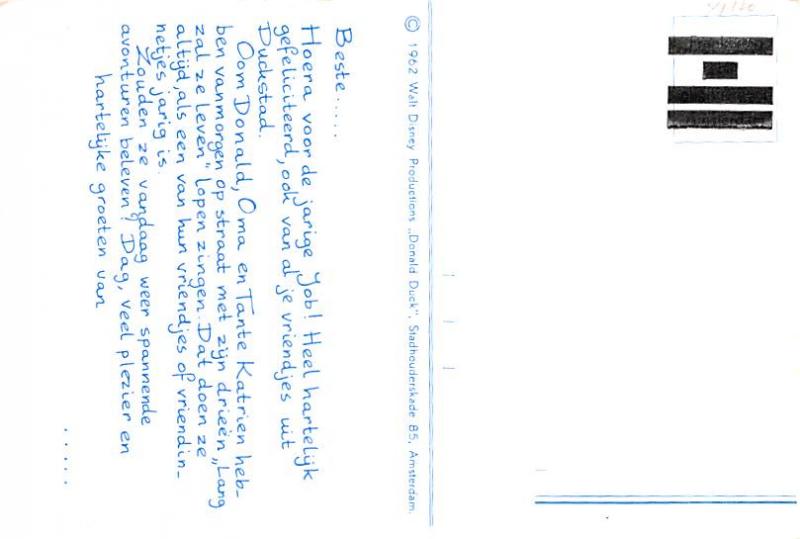 Beste.....
Hoera voor de jarige Job! Heel hartelijk
gefeliciteerd, ook van al je vriendjes uit
Duckstad.
Oom Donald, Oma en Tante Katrien heb-
ben vanmorgen op straat met zijn drieën „Lang
zal ze leven" lopen zingen. Dat doen ze
altijd, als een van hun vriendjes of vriendin-
netjes jarig is.
Zouden ze vandaag weer spannende
avonturen beleven? Dag, veel plezier en
hartelijke groeten van
......
© 1962 Walt Disney Productions „Donald Duck", Stadhouderskade 85, Amsterdam.